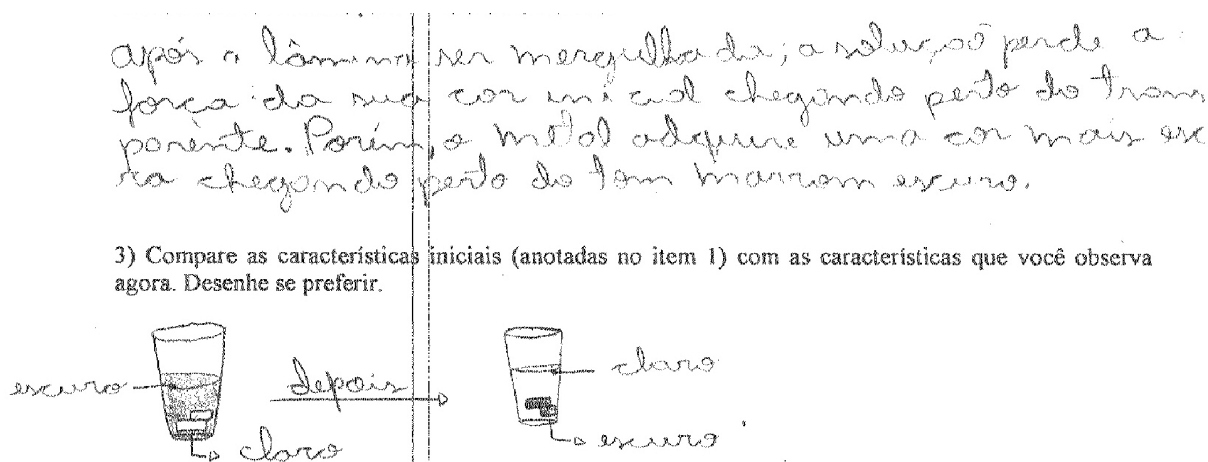 após a lâmina ser mergulhada; a solução perde a
força da sua cor inicial chegando perto do trans
parente. Porém, o metal adquire uma cor mais esc
ra chegando perto do tom marrom escuro.
3) Compare as características iniciais (anotadas no item 1) com as características que você observa
agora. Desenhe se preferir.
escuro
depois
claro
claro
escuro